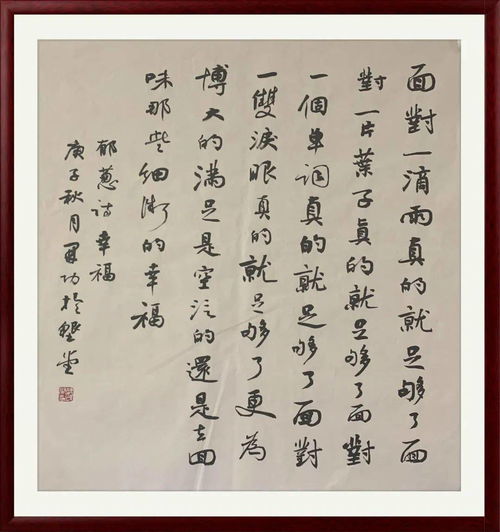 面對一滴雨真的就足够了面
對一片葉子真的就足够了面對
一個單詞真的就足够了面對
一雙淚眼真的就足够了更為
博大的滿足是空泛的還是去回
味那些細微的幸福
郁葱詩幸福
庚子秋月功於堂